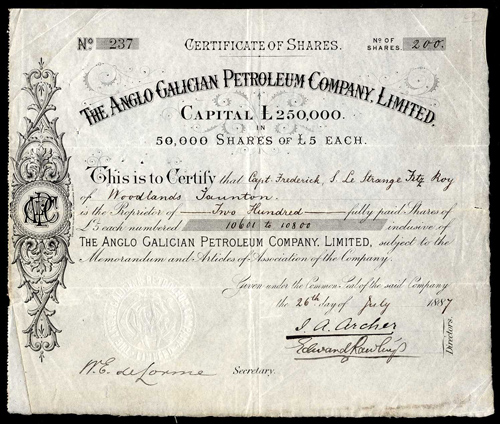 No 237 CERTIFICATE OF SHARES. No OF SHARES. 200.
THE ANGLO GALICIAN PETROLEUM COMPANY, LIMITED.
CAPITAL £250,000.
IN
50,000 SHARES OF £5 EACH.
This is to Certify that Capt. Frederick, S. Le Strange Fitz Roy
of Woodlands Taunton
is the Proprietor of Two Hundred fully paid Shares of
£5 each numbered 10601 to 10800 inclusive of
THE ANGLO GALICIAN PETROLEUM COMPANY, LIMITED, subject to the
Memorandum and Articles of Association of the Company.
Given under the Common Seal of the said Company
the 26th day of July 1887
J. A. Archer
Edward Rawlings
Directors.
W. E. de Lorme Secretary.